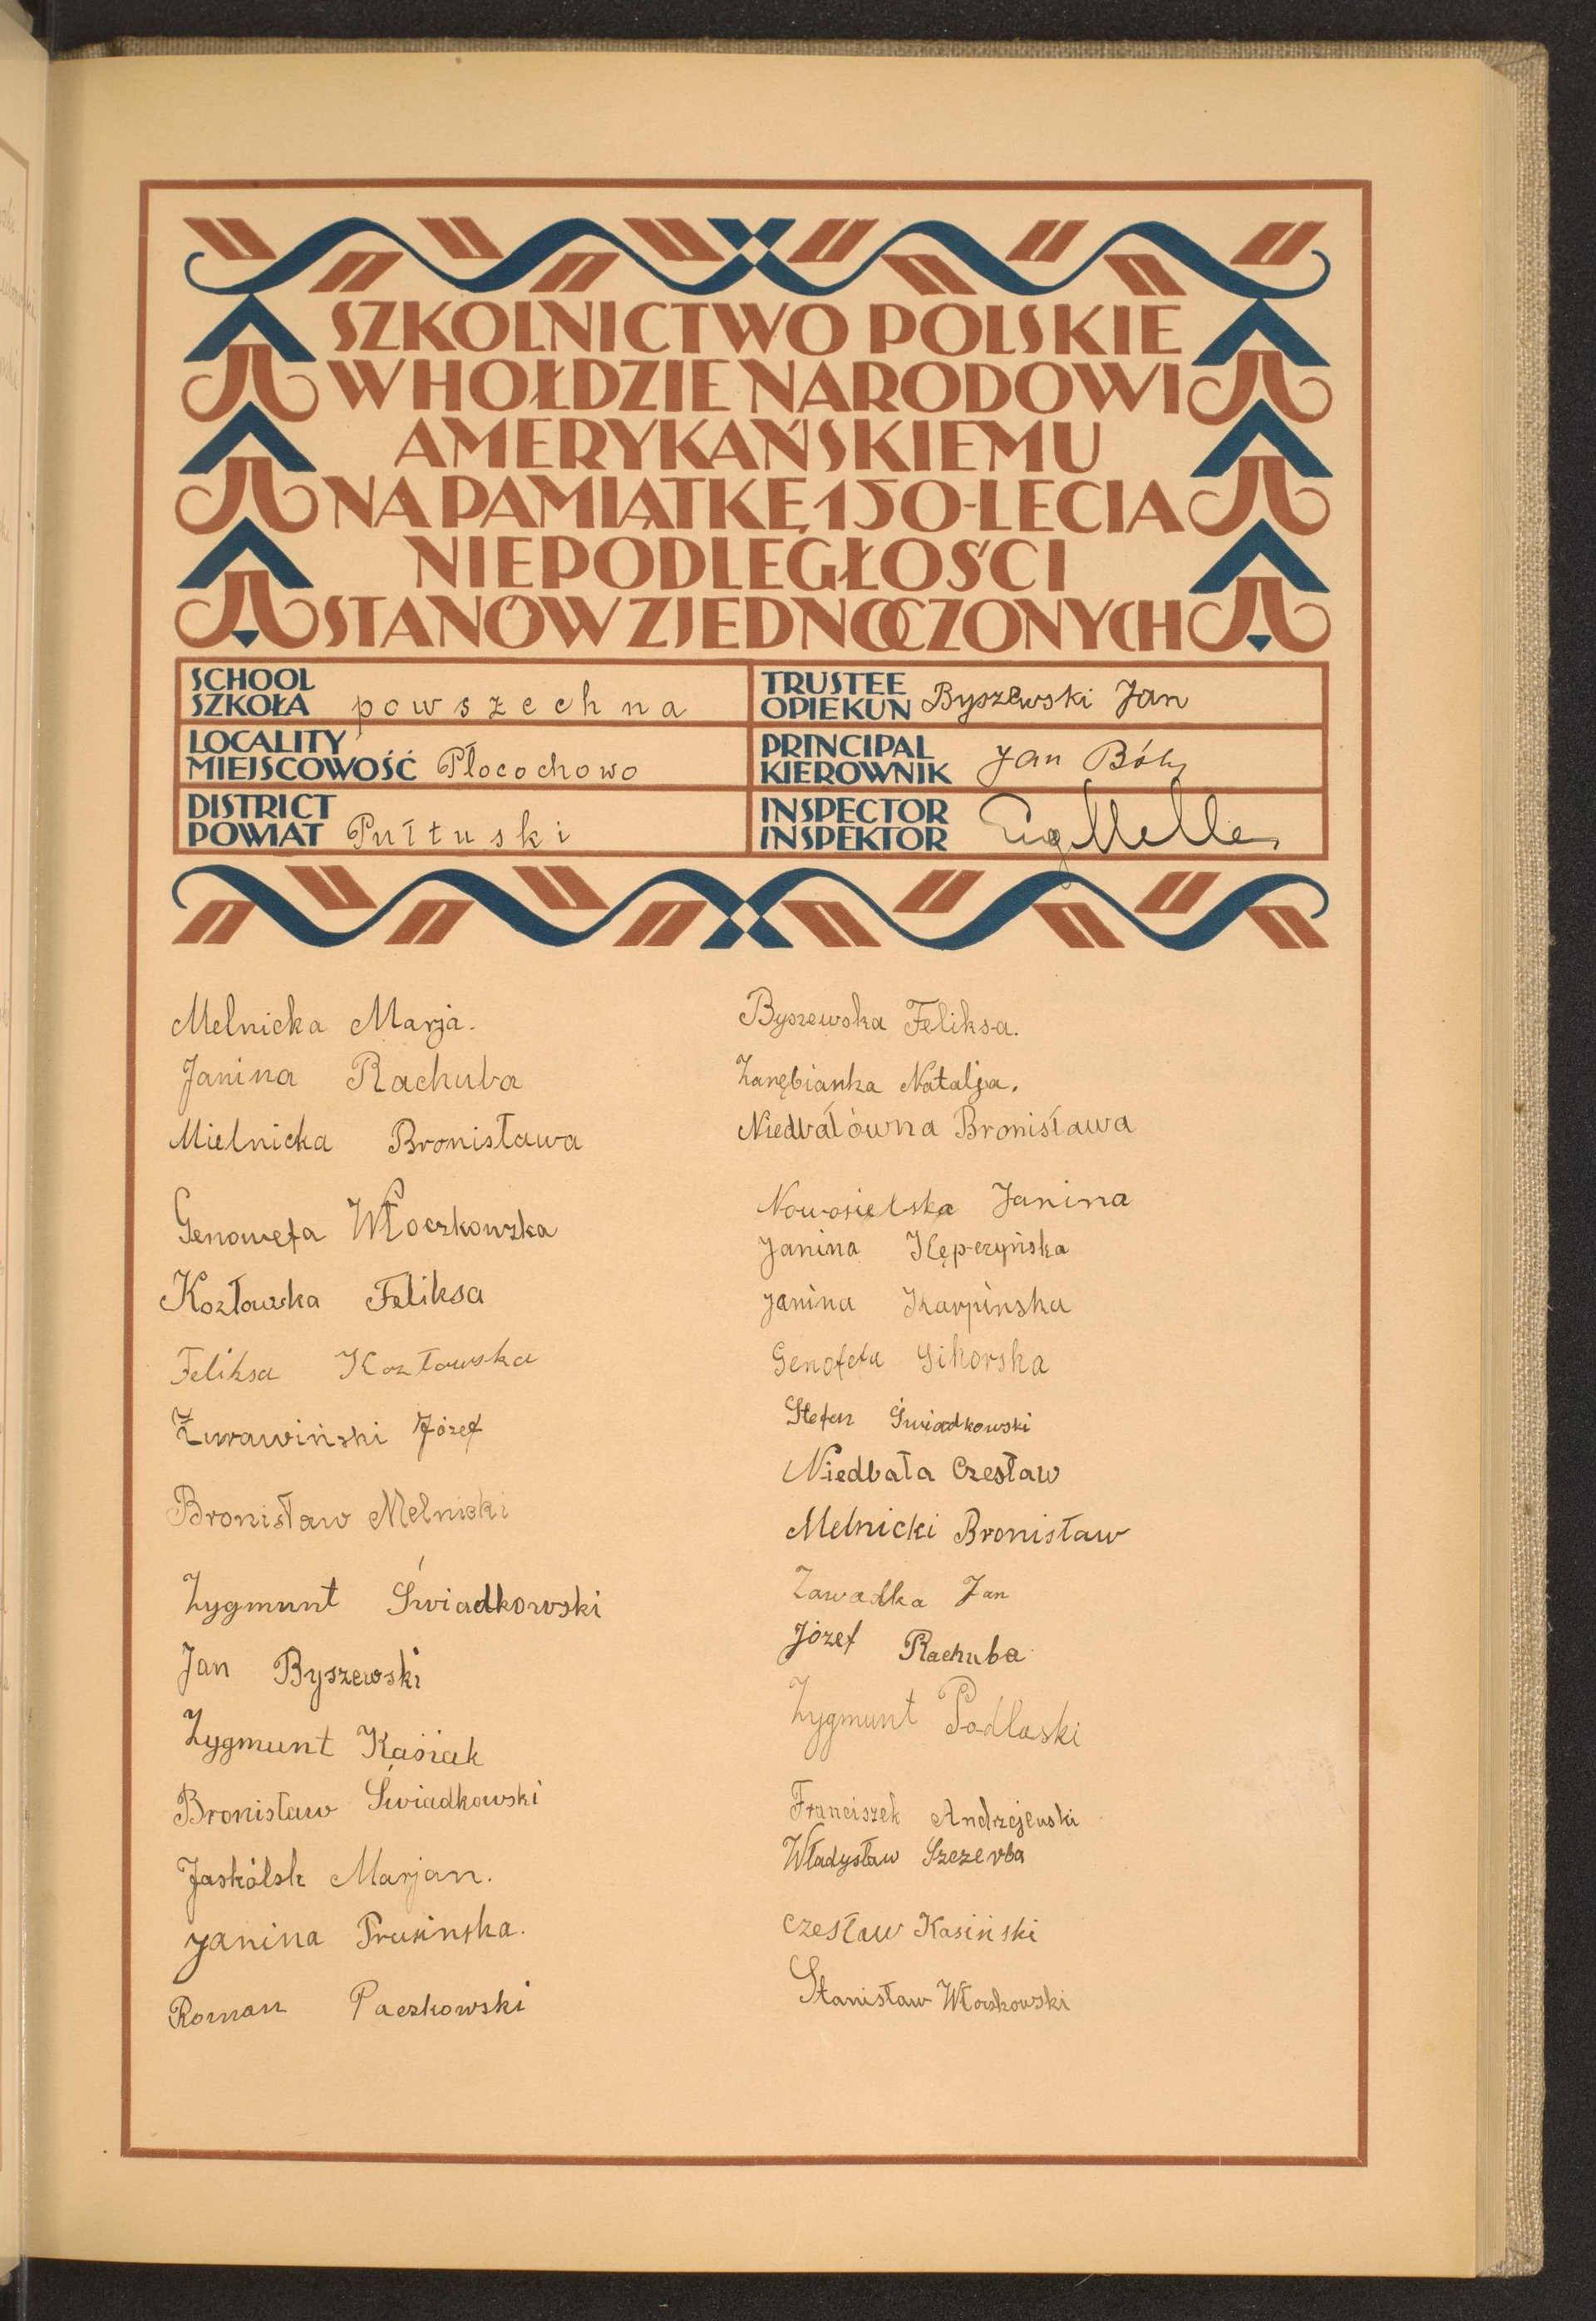 SZKOLNICTWO POLSKIE
W HOŁDZIE NARODOWI
AMERYKAŃSKIEMU
NA PAMIĄTKĘ 150-LECIA
NIEPODLEGŁOŚCI
STANÓW ZJEDNOCZONYCH
SCHOOL
SZKOŁA powszechna
LOCALITY
MIEJSCOWOŚĆ Płocochowo
DISTRICT
POWIAT Pułtuski
TRUSTEE
OPIEKUN Byszewski Jan
PRINCIPAL
KIEROWNIK Jan
INSPECTOR
INSPEKTOR
Melnicka Marja.
Janina Rachuba
Mielnicka Bronisława
Genowefa Włoczkowska
Kozłowska Feliksa
Feliksa Kozłowska
Żurawiński Józef
Bronisław Melnicki
Zygmunt Świadkowski
Jan Byszewski
Zygmunt Kasiak
Bronisław Świadkowski
Jaskólsk Marjan.
Janina Prusinska.
Roman Paczkowski
Byszewska Feliksa.
Zarębianka Natalja.
Niedbałówna Bronisława
Nowosielska Janina
Janina Kępczyńska
Janina Karpinska
Genofefa Sikorska
Stefan Świadkowski
Niedbała Czesław
Melnicki Bronisław
Zawadka Jan
Józef Rachuba
Zygmunt Podlaski
Franciszek Andrzejewski
Władysław Szczerba
Czesław Kasiński
Stanisław Włoskowski